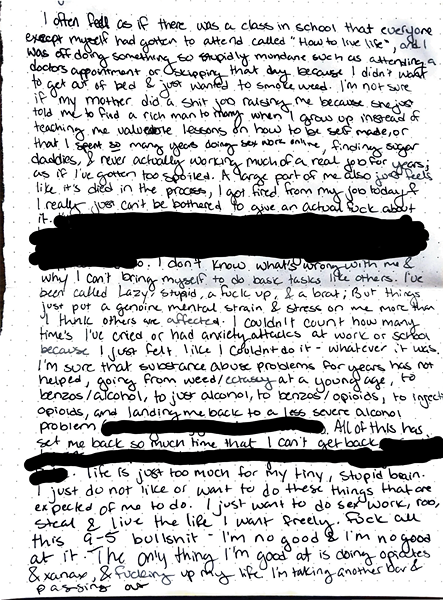 I often feel as if there was a class in school that everyone
except myself had gotten to attend called "How to live life", and I
was off doing something so stupidly mundane such as attending a
doctors appointment or skipping that day because I didn't want
to get out of bed & just wanted to smoke weed. I'm not sure
if my mother did a shit job raising me because she just
told me to find a rich man to marry when I grow up instead of
teaching me valueable lessons on how to be self made, or
that I spent so many years doing sex work online, finding sugar
daddies, & never actually working much of a real job for years;
as if I've gotten too spoiled. A large part of me also just feels
like it's died in the process, I got fired from my job today &
I really just can't be bothered to give an actual fuck about
it.
I don't know what's wrong with me &
why I can't bring myself to do basic tasks like others. I've
been called Lazy, stupid, a fuck up, & a brat; But things
just put a genuine mental strain & stress on me more than
I think others are affected. I couldn't count how many
times I've cried or had anxiety attacks at work or school
because I just felt like I couldn't do it - whatever it was.
I'm sure that substance abuse problems for years has not
helped, going from weed/ecstasy at a young age, to
benzos/alcohol, to just alcohol, to benzos/opioids, to injecting
opioids, and landing me back to a less severe alcohol
problem. All of this has
set me back so much time that I can't get back
life is just too much for my tiny, stupid brain.
I just do not like or want to do these things that are
expected of me to do. I just want to do sex work, rob,
steal & live the life I want freely. Fuck all
this 9-5 bullshit - I'm no good & I'm no good
at it. The only thing I'm good at is doing opiates
& xanax, & fucking up my life. I'm taking another bar &
passing out